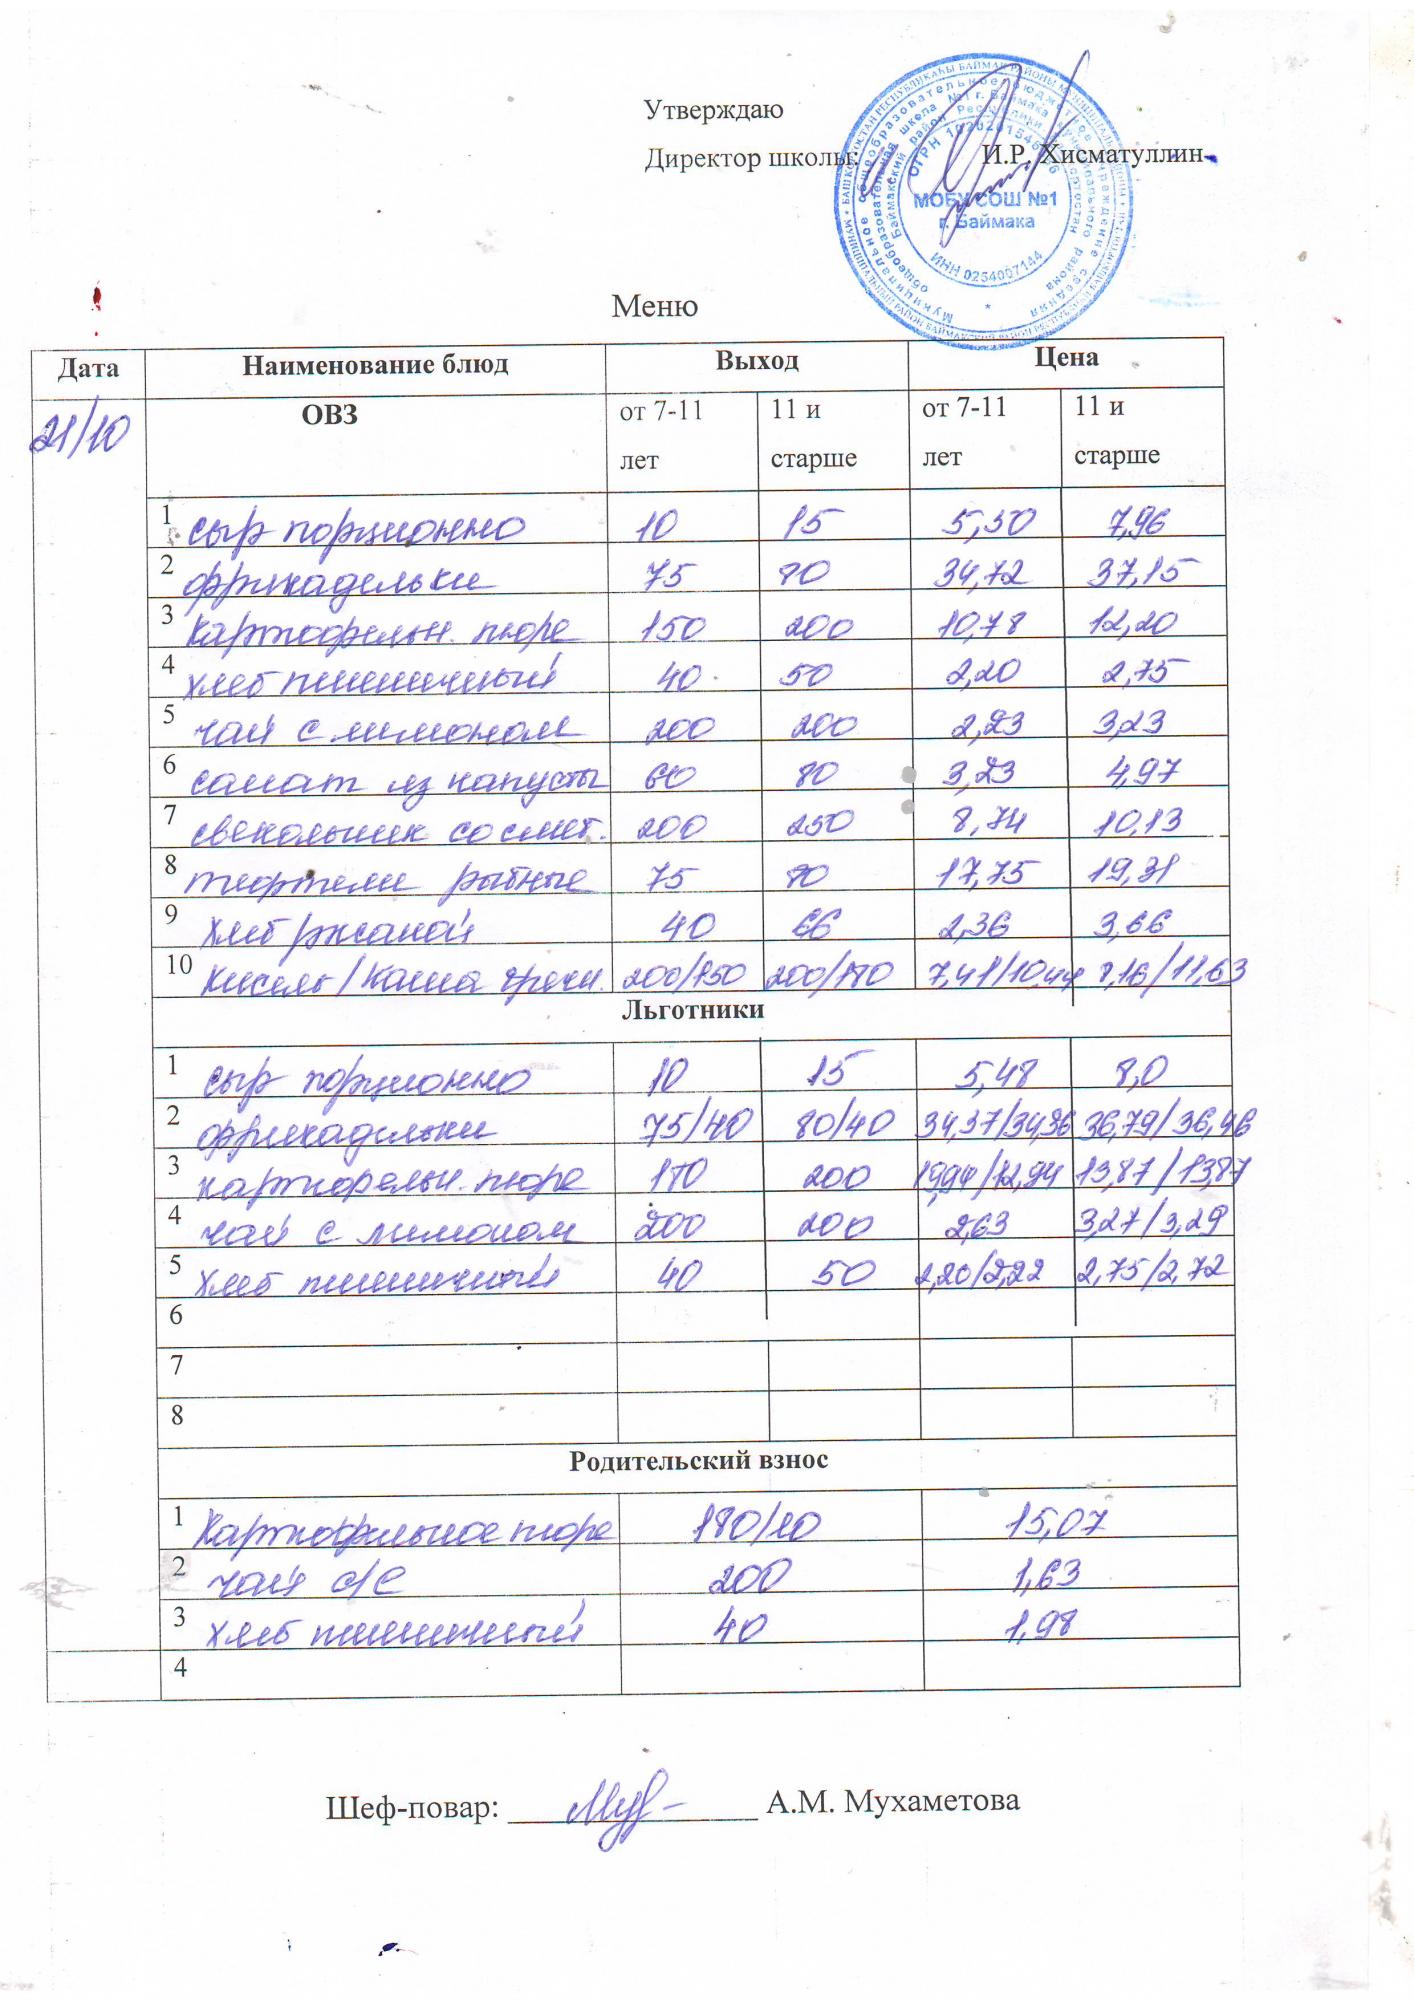 Утверждаю
Директор школы: И.Р. Хисматуллин
МОБУ СОШ №1
г. Баймака
ИНН 0254007144
Меню
Дата Наименование блюд Выход Цена
21/10 ОВЗ от 7-11 лет 11 и старше от 7-11 лет 11 и старше
1 сыр порционно 10 15 5,30 7,96
2 фрикадельки 75 80 34,72 37,15
3 картофельн. пюре 150 200 10,78 12,20
4 хлеб пшеничный 40 50 2,20 2,75
5 чай с лимоном 200 200 2,23 3,23
6 салат из капусты 60 80 3,23 4,97
7 свекольник со смет. 200 250 8,74 10,13
8 тефтели рыбные 75 80 17,75 19,31
9 хлеб ржаной 40 66 2,36 3,66
10 кисель/каша гречн. 200/150 200/180 7,41/10,44 8,16/11,63
Льготники
1 сыр порционно 10 15 5,48 8,0
2 фрикадельки 75/40 80/40 34,37/34,36 36,79/36,46
3 картофельн. пюре 200 13,87/13,87
4 чай с лимоном 200 200 2,63 3,27/3,29
5 хлеб пшеничный 40 50 2,20/2,22 2,75/2,72
6
7
8
Родительский взнос
1 Картофельное пюре 180/10 15,07
2 чай с/с 200 1,63
3 хлеб пшеничный 40 1,98
4
Шеф-повар: А.М. Мухаметова